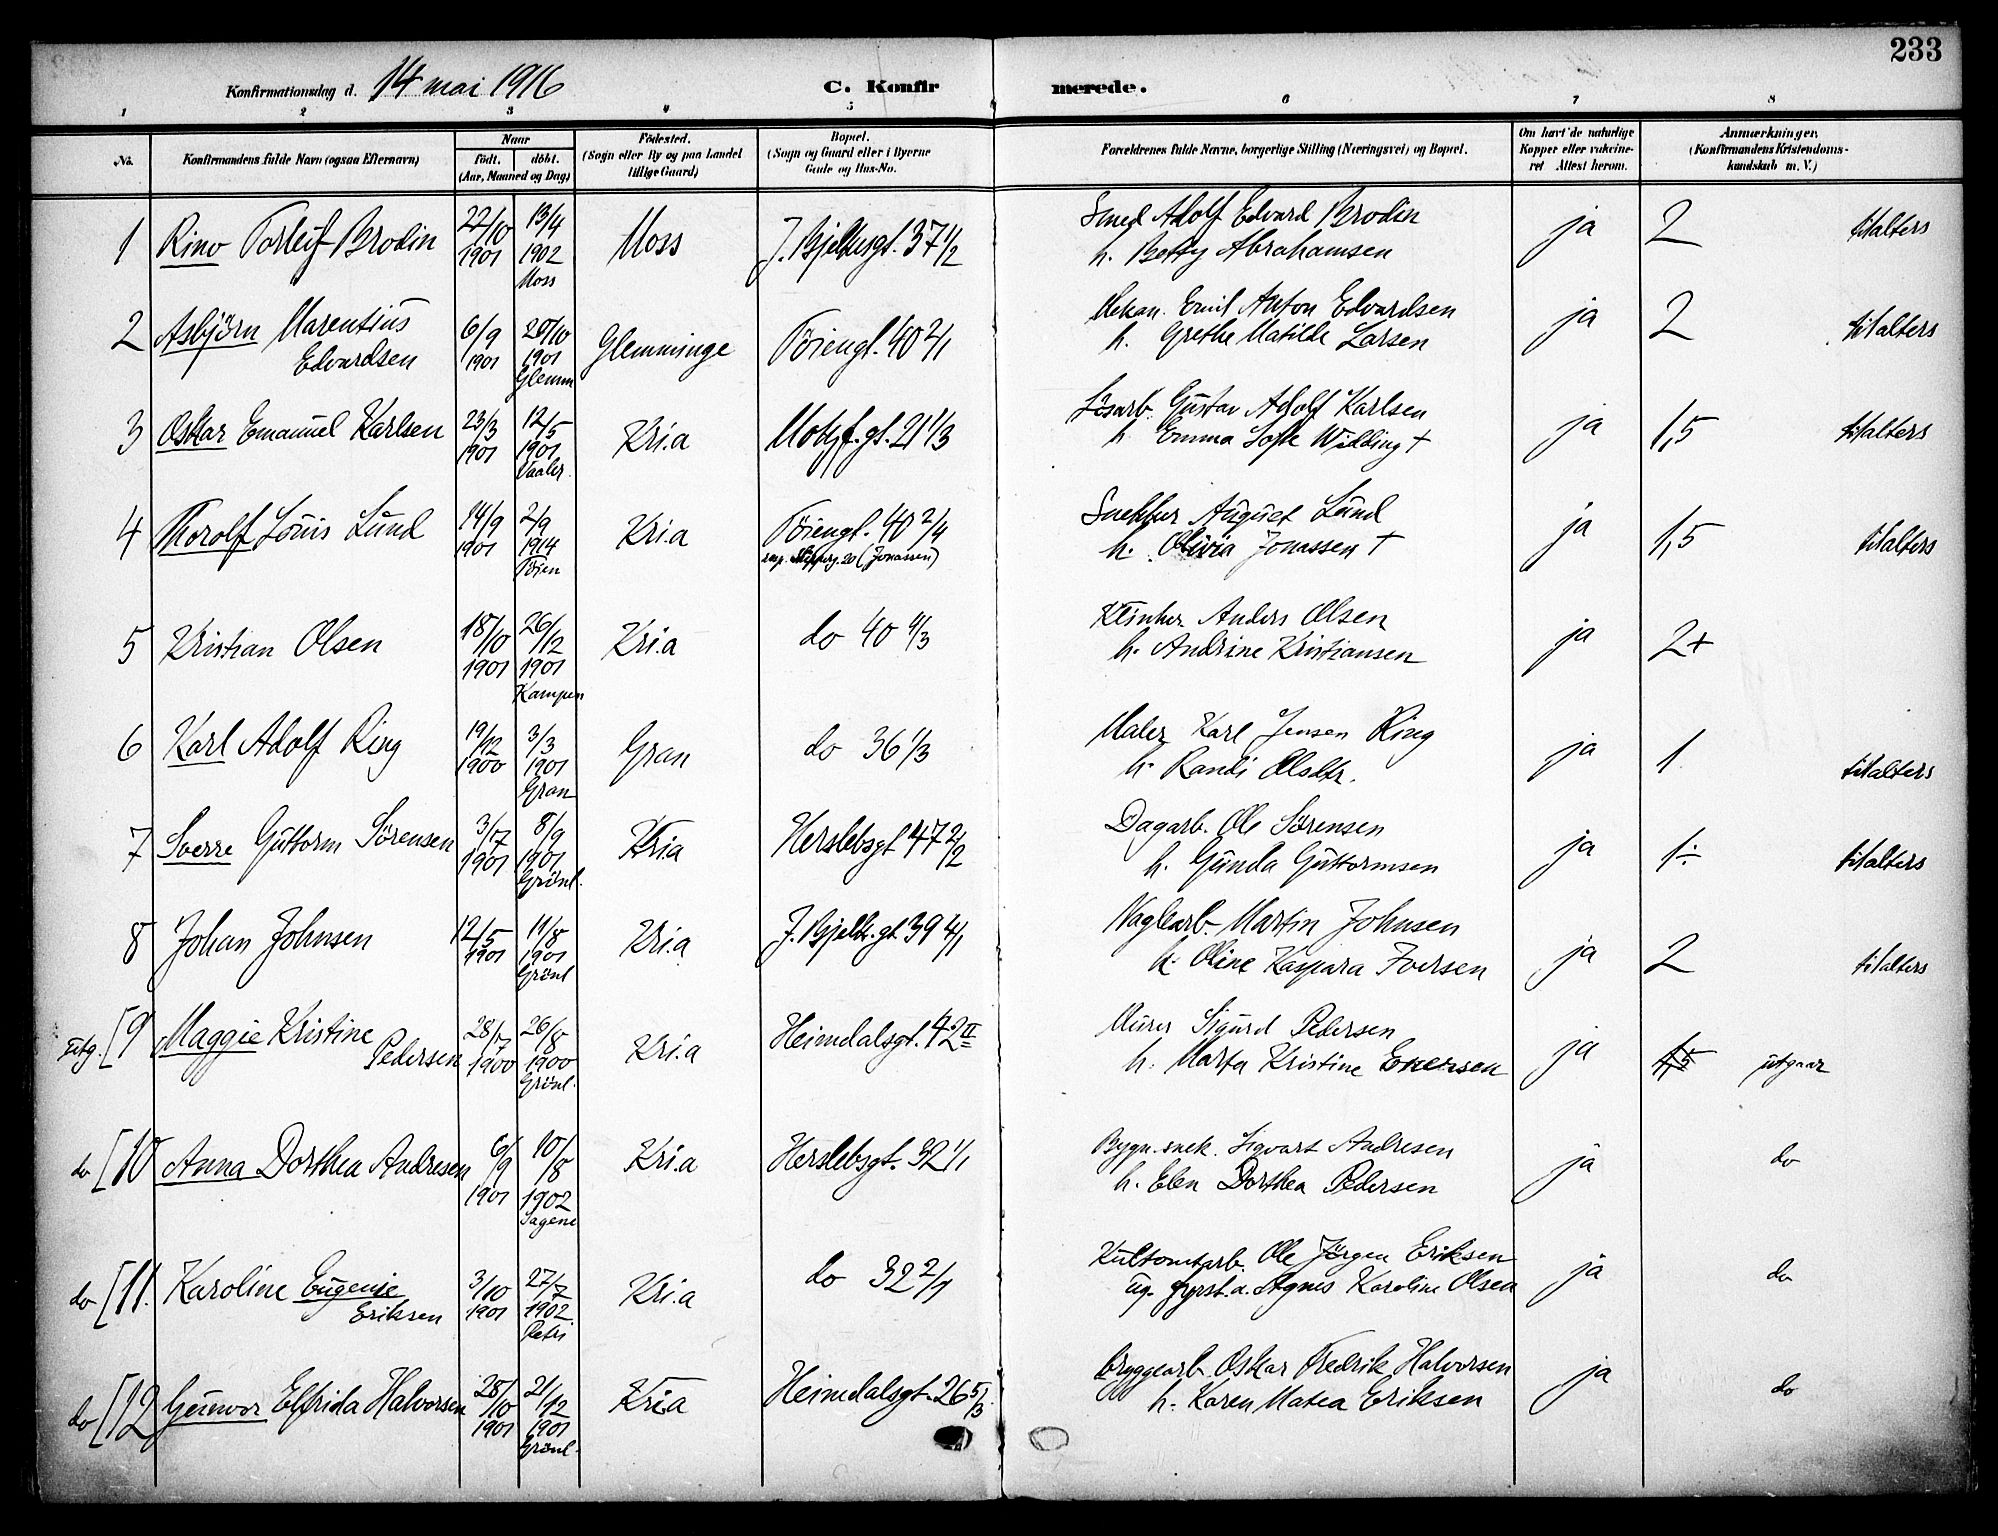 233
Konfirmationsdag d. 14 mai 1916 C. Konfir merede.
1 2 3 4 5 6 7 8
No. Konfirmandens fulde Navn (ogsaa Efternavn) Naar født. døbt. (Aar, Maaned og Dag) Fødested. (Sogn eller By og paa Landet tillige Gaard) Bopæl. (Sogn og Gaard eller i Byerne Gade og Hus-No. Forældrenes fulde Navne, borgerlige Stilling (Næringsvei) og Bopæl. Om havt de naturlige Kopper eller vaccineret Attest herom. Anmærkninger. (Konfirmandens Kristendomskundskab m. V.)
1 Rino Torleif Brodin 22/10 1901 13/4 1902 Moss Moss J. Bjelkesgt. 37 1/2 Smed Adolf Edvard Brodin ja 2 tilalters
h. Betsy Abrahamsen
2 Asbjörn Marentius 6/9 1901 20/10 1901 Glemm Glemminge Töiengt. 40 2/1 Mekan. Emil Anton Edvardsen ja 2 tilalters
Edvardsen h. Grethe Matilde Larsen
3 Oskar Emanuel Karlsen 23/3 1901 12/5 1901 Vaaler Kri.a Motzf.gt. 21 1/3 Lösarb. Gustav Adolf Karlsen ja 1,5 tilalters
h. Emma Sofie Wilding †
4 Thorolf Louis Lund 14/9 1901 2/9 1914 Töien Kri.a Töiengt. 40 2/4 Snekker August Lund ja 1,5 tilalters
20 (Jonassen) h. Olivia Jonassen †
5 Kristian Olsen 18/10 1901 26/12 1901 Kampen Kri.a do 40 4/3 Anders Olsen ja 2+
h. Andrine Kristiansen
6 Karl Adolf Ring 19/12 1900 3/3 1901 Gran Gran do 36 1/3 Maler Karl Jensen Ring ja 1 tilalters
h. Randi Olsdtr.
7 Sverre Guttorm Sörensen 3/7 1901 8/9 1901 Grönl. Kri.a Herslebsgt 47 2/2 Dagarb. Ole Sörensen ja 1÷ tilalters
h. Gunda Guttormsen
8 Johan Johnsen 12/5 1901 11/8 1901 Grönl Kri.a J. Bjelk.gt. 39 4/1 Naglearb. Martin Johnsen ja 2 tilalters
h. Oline Kaspara Iversen
utg. [9 Maggie Kristine 28/7 1900 26/8 1900 Grönl. Kri.a Heimdalsgt. 42 II Murer Sigurd Pedersen ja 1,5 utgaar
Pedersen h. Marta Kristine Enersen
do [10 Anna Dorthea Andresen 6/9 1901 10/8 1902 Sagene Kri.a Herslebsgt. 32 1/1 Bygn.snek. Sigvart Andresen ja do
h. Elen Dorthea Pedersen
do [11. Karoline Eugenie 3/10 1901 27/7 1902. Petri Kri.a do 32 2/1 Ole Jörgen Eriksen ja do
Eriksen Agnes Karoline Olsen
do [12 Gunvor Elfrida Halvorsen 28/10 1901 21/12 1901 Grönl. Kri.a Heimdalsgt. 26 5/3. Bryggearb. Oskar Fredrik Halvorsen ja do
h. Karen Matea Eriksen